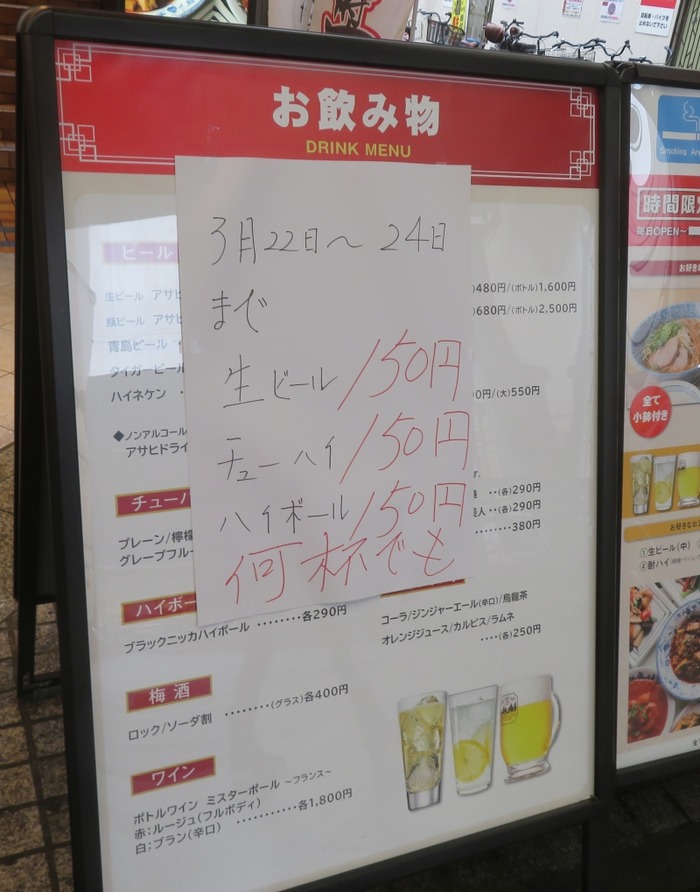 お飲み物
DRINK MENU
3月22日～24日
まで
生ビール 150円
チューハイ 150円
ハイボール 150円
何杯でも
ビール
生ビール アサヒ
瓶ビール アサヒ
青島ビール
タイガービール
ハイネケン
◆ノンアルコール
アサヒドライ
)480円/(ボトル)1,600円
)680円/(ボトル)2,500円
0円/(大)550円
チューハ
プレーン/檸檬
グレープフルー
‥(各)290円
人‥(各)290円
380円
ハイボー
ブラックニッカハイボール ‥‥‥‥各290円
コーラ/ジンジャーエール(辛口)/烏龍茶
オレンジジュース/カルピス/ラムネ
‥‥(各)250円
梅酒
ロック/ソーダ割 ‥‥‥‥(グラス)各400円
ワイン
ボトルワイン ミスターボール ～フランス～
赤:ルージュ(フルボディ)
白:ブラン(辛口) ‥‥‥‥‥‥各1,800円
Smoking Are
時間限
毎日OPEN～
お好き
全て
小鉢付き
お好きなお
①生ビール(中)
④酎ハイ